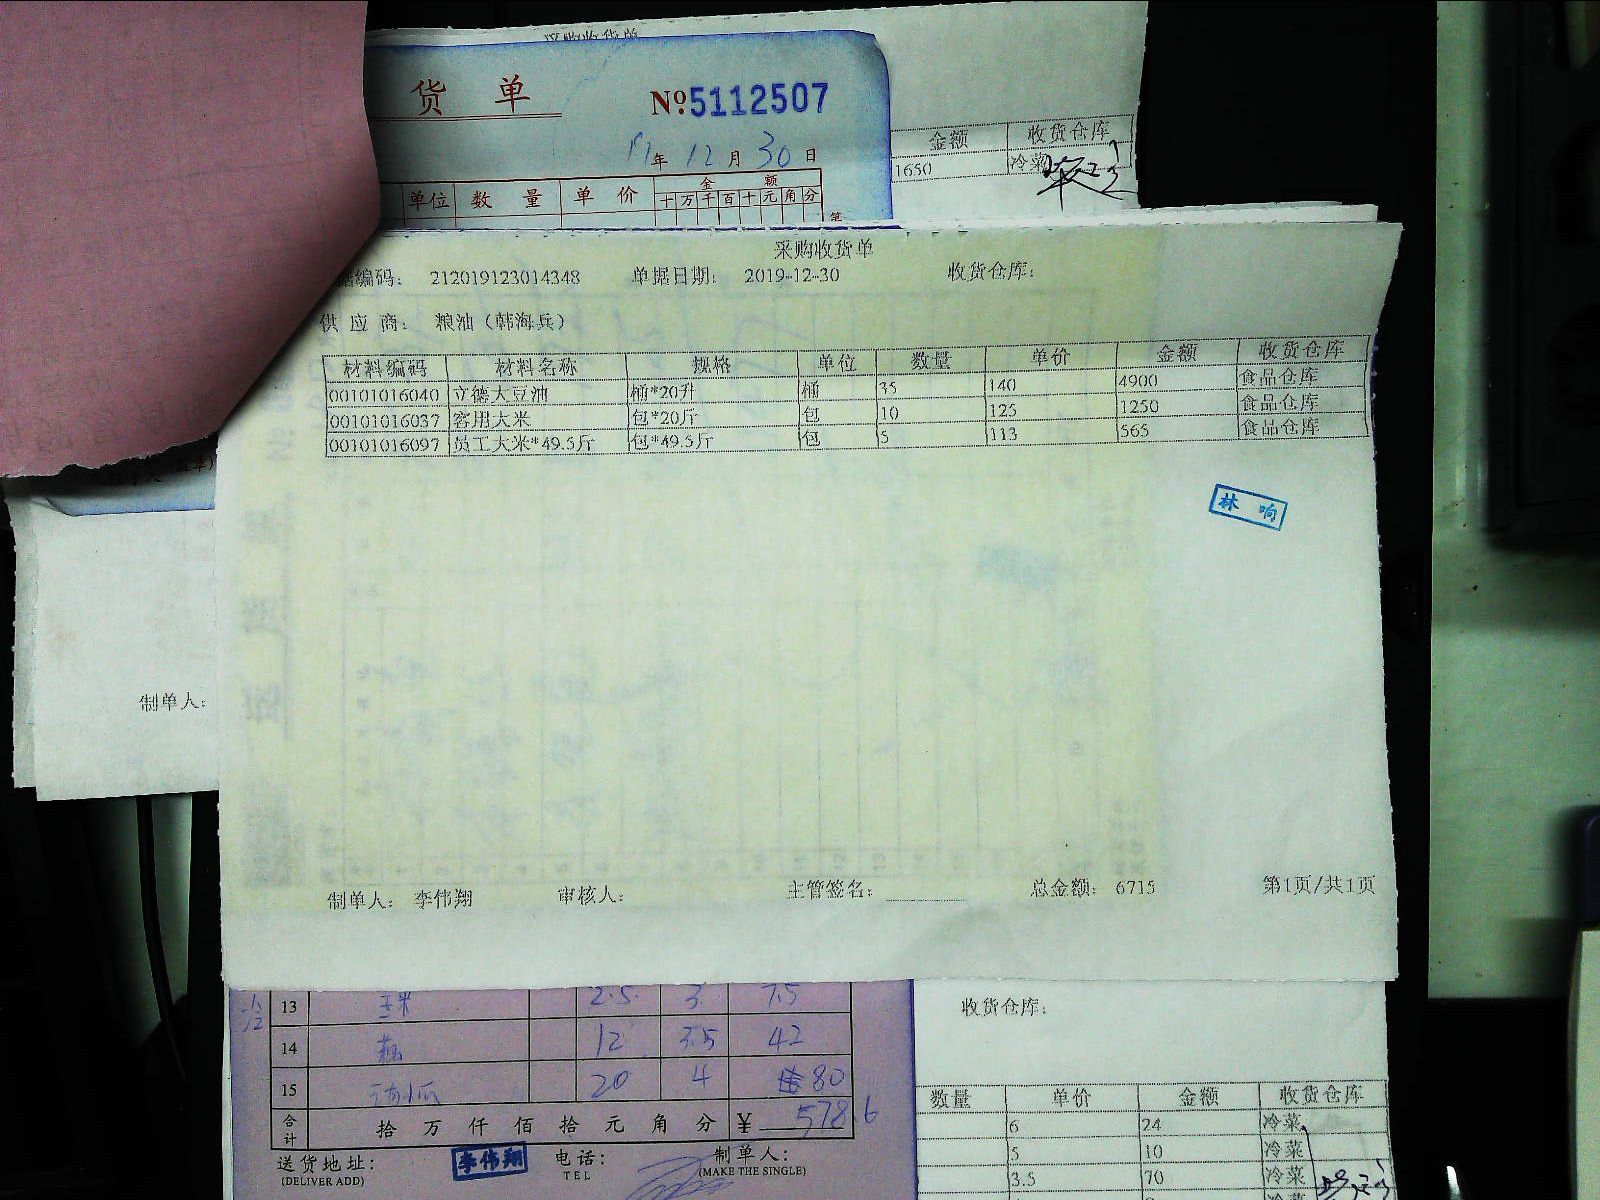 采购收货单
货 单
No 5112507
年 12 月 30 日
单位 数 量 单 价 金 额
十 万 千 百 十 元 角 分
金额 收货仓库
1650 冷菜
采购收货单
据编码： 212019123014348 单据日期： 2019-12-30 收货仓库：
供 应 商： 粮油（韩海兵）
材料编码 材料名称 规格 单位 数量 单价 金额 收货仓库
00101016040 立德大豆油 桶*20升 桶 35 140 4900 食品仓库
00101016037 客用大米 包*20斤 包 10 125 1250 食品仓库
00101016097 员工大米*49.5斤 包*49.5斤 包 5 113 565 食品仓库
林 响
制单人：
制单人： 李伟翔 审核人： 主管签名： 总金额： 6715 第1页/共1页
13 玉米 2.5 3 7.5
14 12 3.5 42
15 20 4 80
合计 拾 万 仟 佰 拾 元 角 分 ¥ 578.6
送货地址： 李伟翔 电话： 制单人：
(DELIVER ADD) TEL (MAKE THE SINGLE)
收货仓库：
数量 单价 金额 收货仓库
6 24 冷菜
5 10 冷菜
3.5 70 冷菜